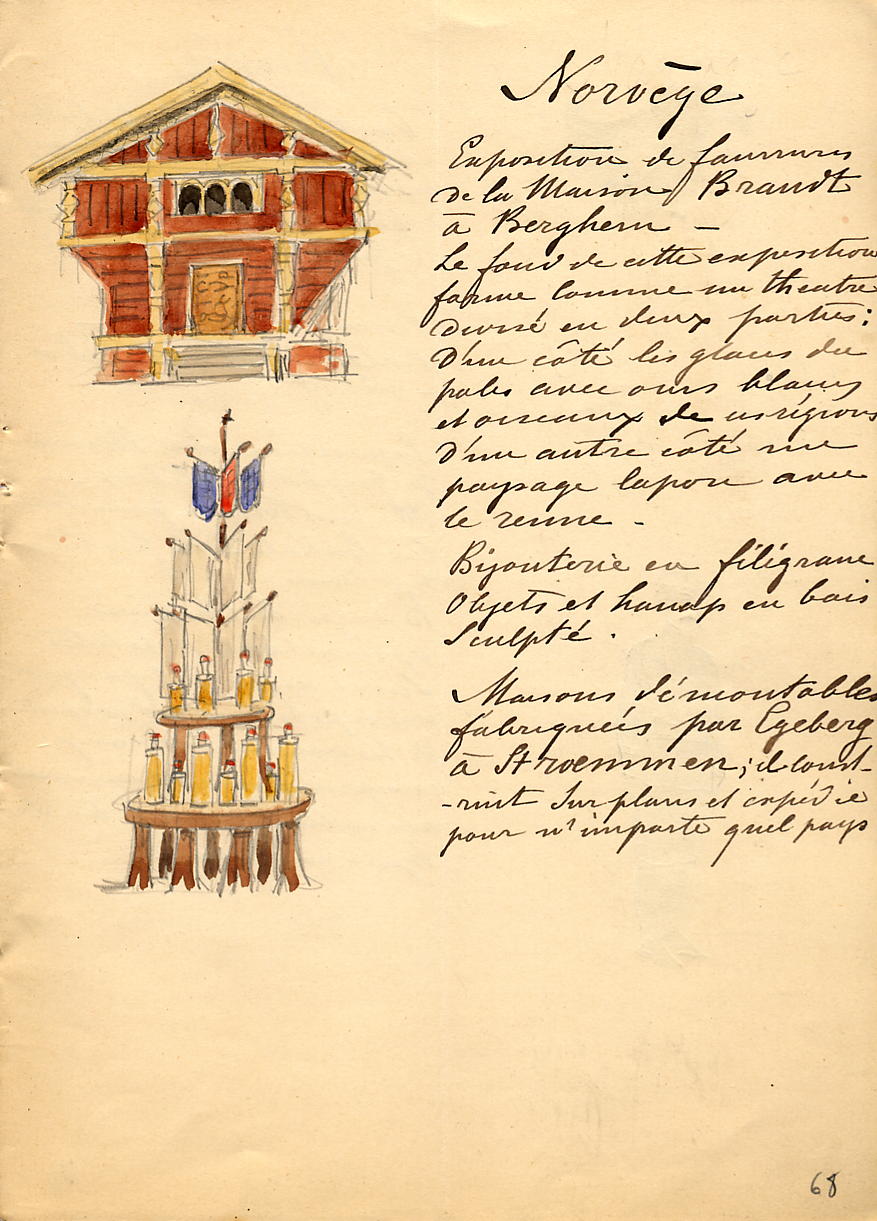 Norvège
Exposition de fourrures
de la Maison Brandt
à Berghem –
Le fond de cette exposition
forme comme un theatre
divisé en deux parties :
D'un côté les glaces du
pole avec ours blancs
et oiseaux de ces régions
D'un autre côté un
paysage lapon avec
le renne -
Bijouterie en filigrane
Objets et hanap en bois
Sculpté .
Maisons démontables
fabriqueés par Egeberg
à Stroemmen ; il const-
-ruit sur plans et expédie
pour n'importe quel pays
68